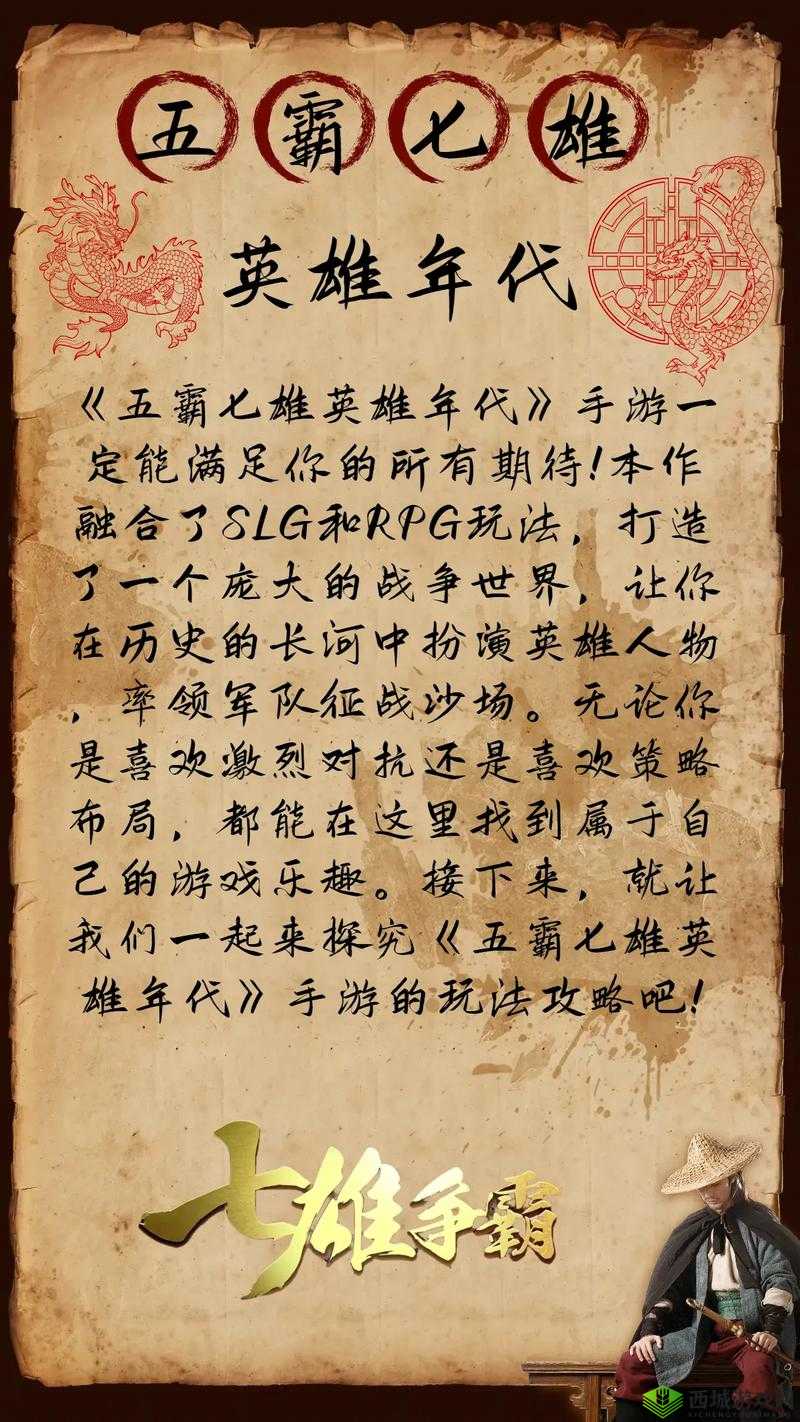 五霸七雄
英雄年代
《五霸七雄英雄年代》手游一
定能满足你的所有期待!本作
融合了SLG和RPG玩法，打造
了一个庞大的战争世界，让你
在历史的长河中扮演英雄人物
，率领军队征战沙场。无论你
是喜欢激烈对抗还是喜欢策略
布局，都能在这里找到属于自
己的游戏乐趣。接下来，就让
我们一起来探究《五霸七雄英
雄年代》手游的玩法攻略吧!
七雄争霸
西城游戏网